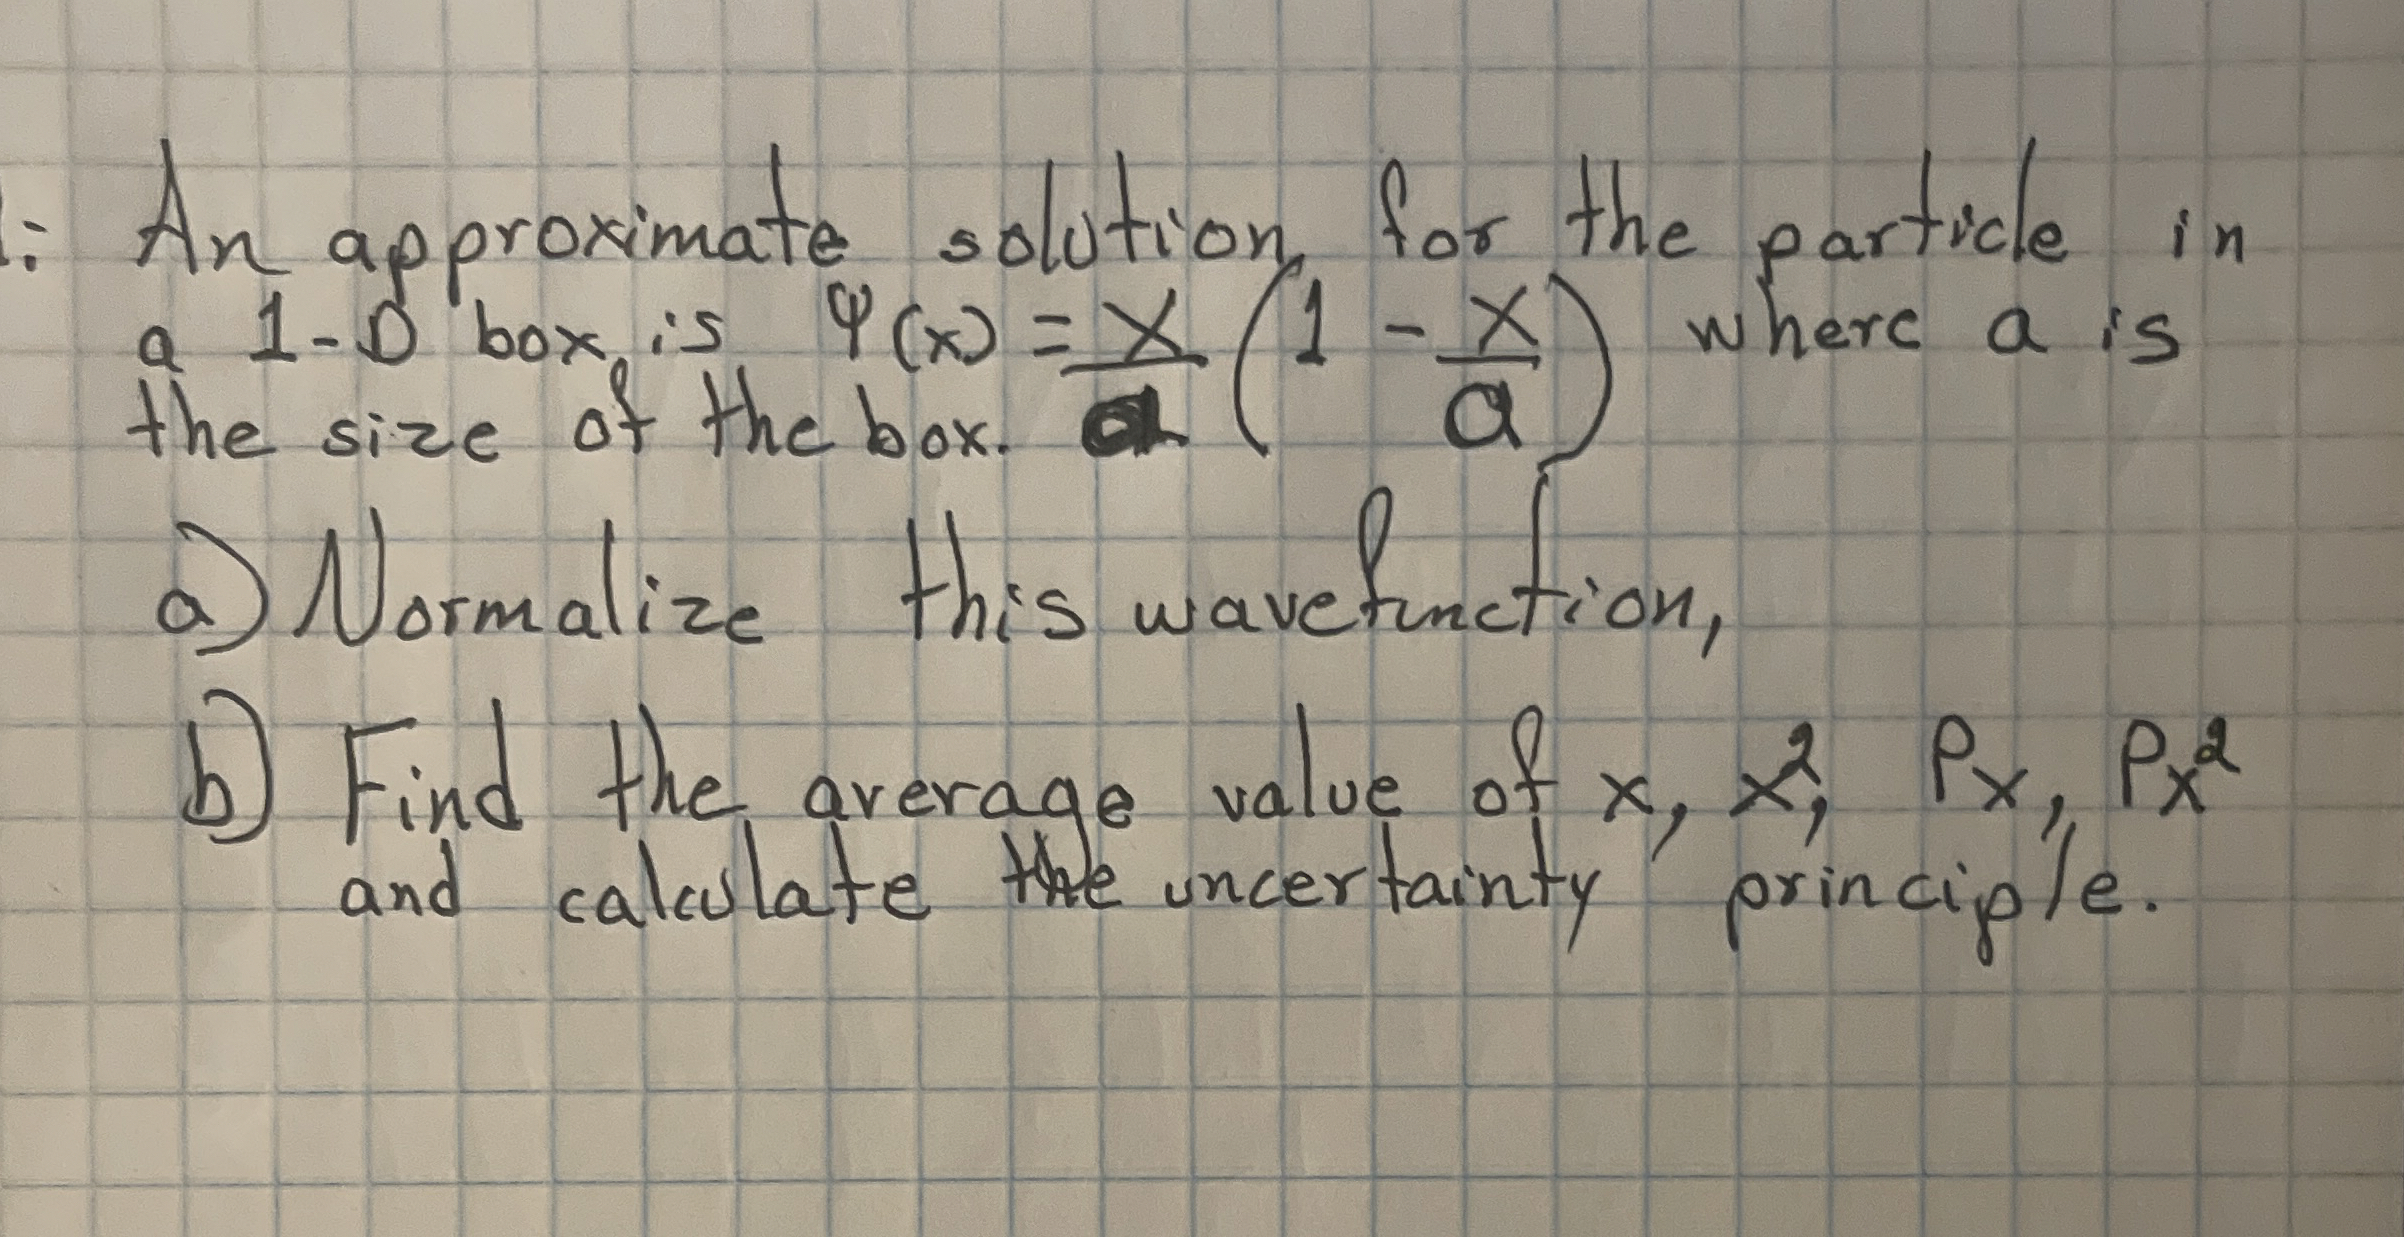 : An approximate solution for the particle in
a 1-D box is Ψ(x) = x/a (1 - x/a) where a is
the size of the box.
a) Normalize this wavefunction,
b) Find the average value of x, x², Px, Px²
and calculate the uncertainty principle.